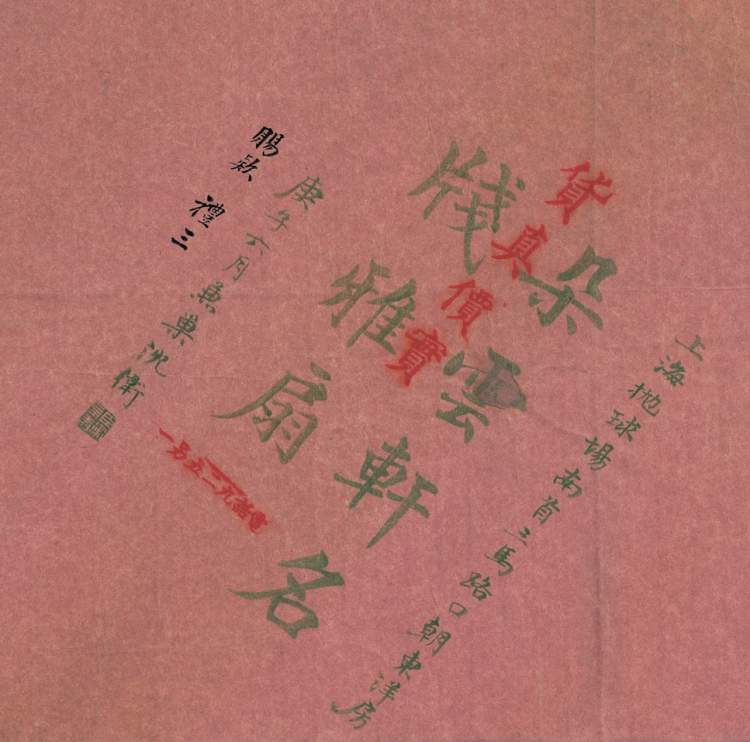 上海抛球場南首三馬路口朝東洋房
朵雲軒名
牋雅扇
貨真價實
庚午六月兼巢沈衛
賜款 禮三
電話九二五另一